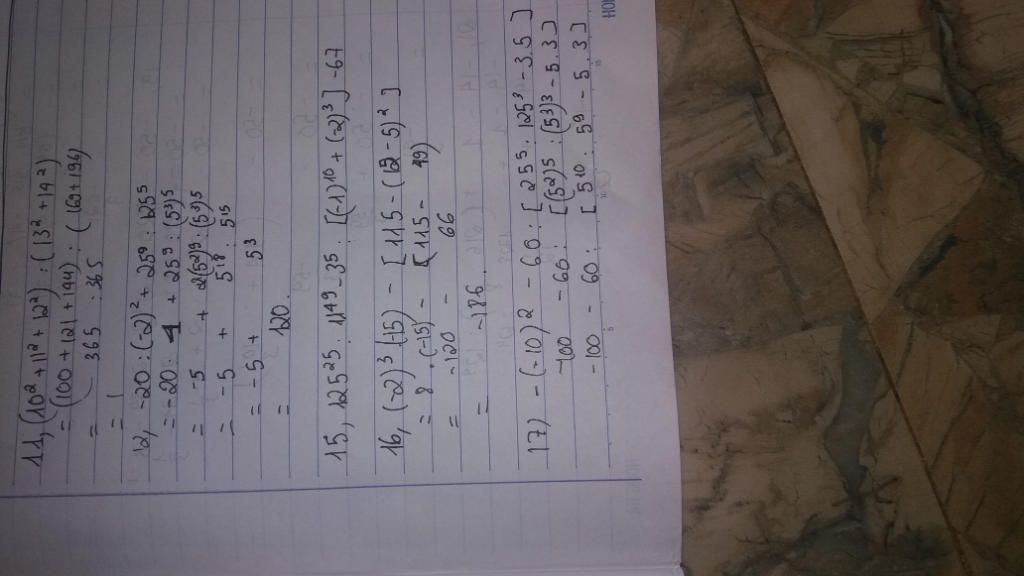 11, (10² + 11² + 12²) : (13² + 14²)
= (100 + 121 + 144) : (169 + 196)
= 365 : 365
= 1
12, -20 : (-2)² + 25⁹ : 125⁵
= -20 : 4 + 25⁹ : (5³)⁵
= -5 + (5²)⁹ : (5³)⁵
= -5 + 5¹⁸ : 5¹⁵
= -5 + 5³
= 120.
15, 125²⁵ : 1149 - 35 : [(-1)¹⁰ + (-2)³] - 67
16, (-2)³ (-15) - [115 - (12 - 5)²]
= 8 . (-15) - (115 - 49)
= -120 - 66
= -186.
17) - (-10)² - 60 : [25⁵ : 125³ - 3.5]
-100 - 60 : [(5²)⁵ : (5³)³ - 5.3]
-100 - 60 : [5¹⁰ : 5⁹ - 5.3]